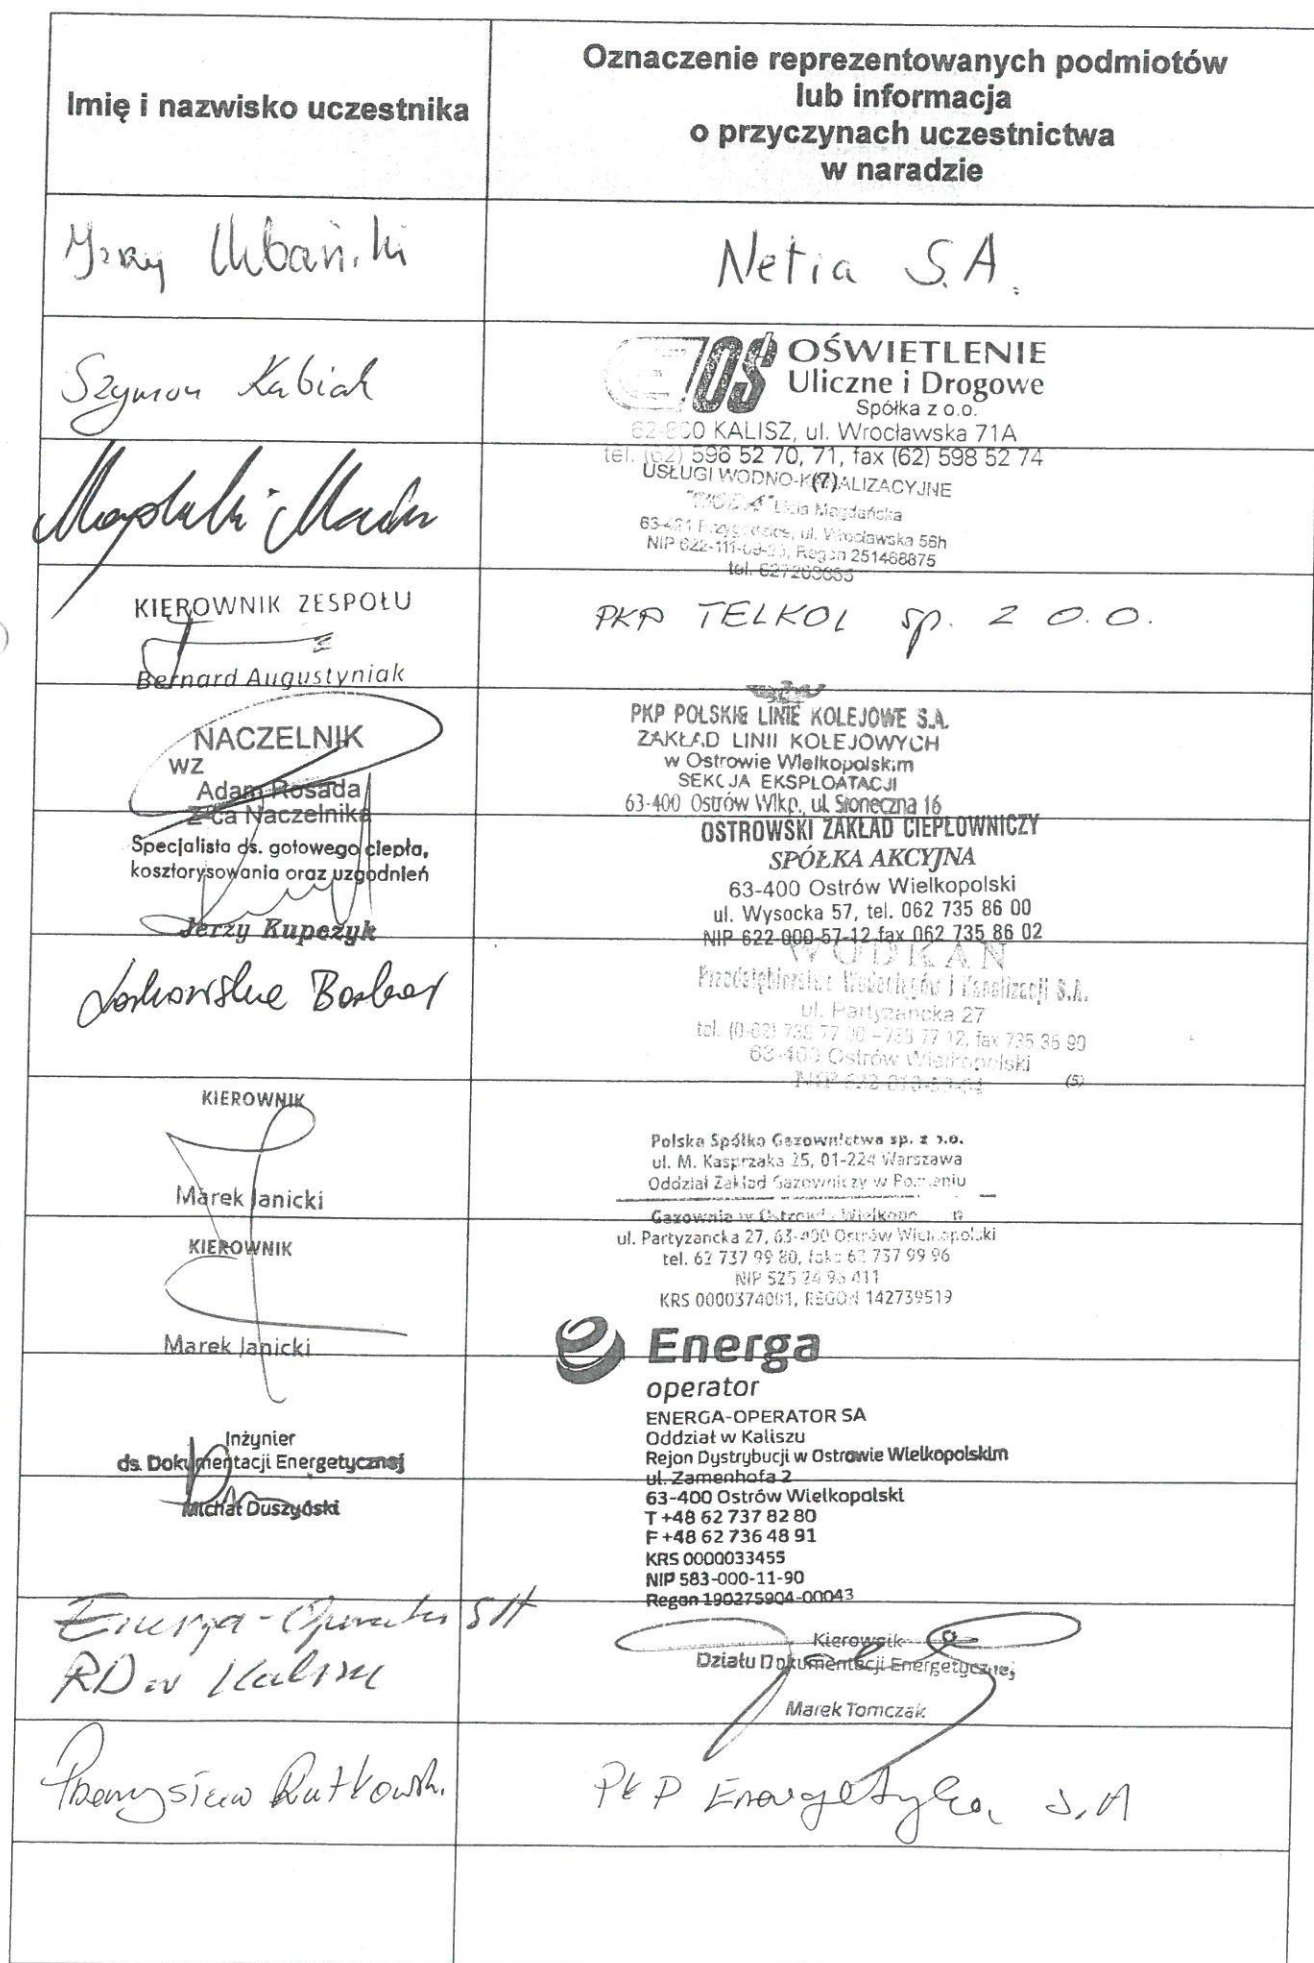 Imię i nazwisko uczestnika
Oznaczenie reprezentowanych podmiotów
lub informacja
o przyczynach uczestnictwa
w naradzie
Netia S.A.
Szymon Kubiak
OŚ OŚWIETLENIE
Uliczne i Drogowe
Spółka z o.o.
62-800 KALISZ, ul. Wrocławska 71A
tel. (62) 596 52 70, 71, fax (62) 598 52 74
(7)
USŁUGI WODNO-KANALIZACYJNE
Magdańska
ul. Wrocławska 56h
Regon 251468875
KIEROWNIK ZESPOŁU
Bernard Augustyniak
PKP TELKOL sp. z o.o.
NACZELNIK
WZ
Adam Rosada
Z-ca Naczelnika
PKP POLSKIE LINIE KOLEJOWE S.A.
ZAKŁAD LINII KOLEJOWYCH
w Ostrowie Wielkopolskim
SEKCJA EKSPLOATACJI
63-400 Ostrów Wlkp., ul. Słoneczna 16
Specjalista ds. gotowego ciepła,
kosztorysowania oraz uzgodnień
Jerzy Kupczyk
OSTROWSKI ZAKŁAD CIEPŁOWNICZY
SPÓŁKA AKCYJNA
63-400 Ostrów Wielkopolski
ul. Wysocka 57, tel. 062 735 86 00
NIP 622-000-57-12 fax 062 735 86 02
WODKAN
Przedsiębiorstwo Wodociągów i Kanalizacji S.A.
ul. Partyzancka 27
fax 735 36 90
63-400 Ostrów Wielkopolski
(5)
KIEROWNIK
Marek Janicki
Polska Spółka Gazownictwa sp. z o.o.
ul. M. Kasprzaka 25, 01-224 Warszawa
Oddział Zakład Gazowniczy w Poznaniu
KIEROWNIK
Marek Janicki
Gazownia w Ostrowie
ul. Partyzancka 27, 63-400 Ostrów Wielkopolski
tel. 62 737 99 80, faks 62 737 99 96
NIP 525 24 96 411
KRS 0000374001, REGON 142739519
Inżynier
ds. Dokumentacji Energetycznej
Michał Duszyński
Energa
operator
ENERGA-OPERATOR SA
Oddział w Kaliszu
Rejon Dystrybucji w Ostrowie Wielkopolskim
ul. Zamenhofa 2
63-400 Ostrów Wielkopolski
T +48 62 737 82 80
F +48 62 736 48 91
KRS 0000033455
NIP 583-000-11-90
Regon 190275904-00043
Energa-Operator SA
RD w Kalisz
Kierownik
Działu Dokumentacji Energetycznej
Marek Tomczak
Przemysław Rutkowski
PKP Energetyka S.A